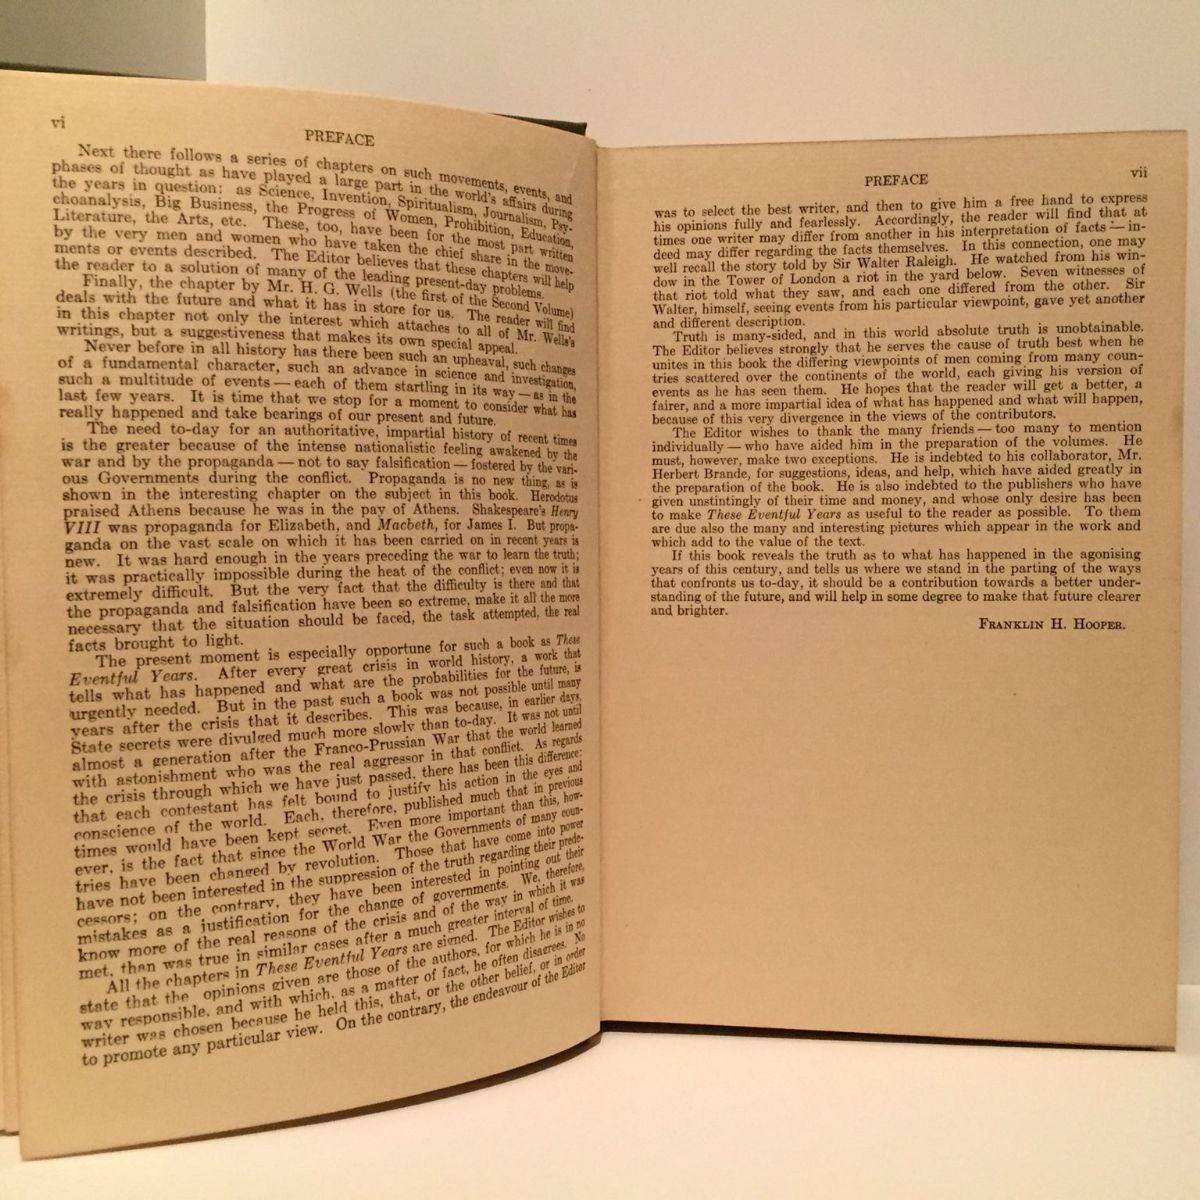 vi
PREFACE
Next there follows a series of chapters on such movements, events, and
phases of thought as have played a large part in the world's affairs during
the years in question: as Science, Invention, Spiritualism, Journalism, Psy-
choanalysis, Big Business, the Progress of Women, Prohibition, Education,
Literature, the Arts, etc. These, too, have been for the most part written
by the very men and women who have taken the chief share in the move-
ments or events described. The Editor believes that these chapters will help
the reader to a solution of many of the leading present-day problems.
Finally, the chapter by Mr. H. G. Wells (the first of the Second Volume)
deals with the future and what it has in store for us. The reader will find
in this chapter not only the interest which attaches to all of Mr. Wells's
writings, but a suggestiveness that makes its own special appeal.
Never before in all history has there been such an upheaval, such changes
of a fundamental character, such an advance in science and investigation,
such a multitude of events — each of them startling in its way — as in the
last few years. It is time that we stop for a moment to consider what has
really happened and take bearings of our present and future.
The need to-day for an authoritative, impartial history of recent times
is the greater because of the intense nationalistic feeling awakened by the
war and by the propaganda — not to say falsification — fostered by the vari-
ous Governments during the conflict. Propaganda is no new thing, as is
shown in the interesting chapter on the subject in this book. Herodotus
praised Athens because he was in the pay of Athens. Shakespeare's Henry
VIII was propaganda for Elizabeth, and Macbeth, for James I. But propa-
ganda on the vast scale on which it has been carried on in recent years is
new. It was hard enough in the years preceding the war to learn the truth;
it was practically impossible during the heat of the conflict; even now it is
extremely difficult. But the very fact that the difficulty is there and that
the propaganda and falsification have been so extreme, make it all the more
necessary that the situation should be faced, the task attempted, the real
facts brought to light.
The present moment is especially opportune for such a book as These
Eventful Years. After every great crisis in world history, a work that
tells what has happened and what are the probabilities for the future, is
urgently needed. But in the past such a book was not possible until many
years after the crisis that it describes. This was because, in earlier days,
State secrets were divulged much more slowly than to-day. It was not until
almost a generation after the Franco-Prussian War that the world learned
with astonishment who was the real aggressor in that conflict. As regards
the crisis through which we have just passed, there has been this difference:
that each contestant has felt bound to justify his action in the eyes and
conscience of the world. Each, therefore, published much that in previous
times would have been kept secret. Even more important than this, how-
ever, is the fact that since the World War the Governments of many coun-
tries have been changed by revolution. Those that have come into power
have not been interested in the suppression of the truth regarding their prede-
cessors; on the contrary, they have been interested in pointing out their
mistakes as a justification for the change of governments. We, therefore,
know more of the real reasons of the crisis and of the way in which it was
met, than was true in similar cases after a much greater interval of time.
All the chapters in These Eventful Years are signed. The Editor wishes to
state that the opinions given are those of the authors, for which he is in no
way responsible, and with which, as a matter of fact, he often disagrees. No
writer was chosen because he held this, that, or the other belief, or in order
to promote any particular view. On the contrary, the endeavour of the Editor
PREFACE
vii
was to select the best writer, and then to give him a free hand to express
his opinions fully and fearlessly. Accordingly, the reader will find that at
times one writer may differ from another in his interpretation of facts — in-
deed may differ regarding the facts themselves. In this connection, one may
well recall the story told by Sir Walter Raleigh. He watched from his win-
dow in the Tower of London a riot in the yard below. Seven witnesses of
that riot told what they saw, and each one differed from the other. Sir
Walter, himself, seeing events from his particular viewpoint, gave yet another
and different description.
Truth is many-sided, and in this world absolute truth is unobtainable.
The Editor believes strongly that he serves the cause of truth best when he
unites in this book the differing viewpoints of men coming from many coun-
tries scattered over the continents of the world, each giving his version of
events as he has seen them. He hopes that the reader will get a better, a
fairer, and a more impartial idea of what has happened and what will happen,
because of this very divergence in the views of the contributors.
The Editor wishes to thank the many friends — too many to mention
individually — who have aided him in the preparation of the volumes. He
must, however, make two exceptions. He is indebted to his collaborator, Mr.
Herbert Brande, for suggestions, ideas, and help, which have aided greatly in
the preparation of the book. He is also indebted to the publishers who have
given unstintingly of their time and money, and whose only desire has been
to make These Eventful Years as useful to the reader as possible. To them
are due also the many and interesting pictures which appear in the work and
which add to the value of the text.
If this book reveals the truth as to what has happened in the agonising
years of this century, and tells us where we stand in the parting of the ways
that confronts us to-day, it should be a contribution towards a better under-
standing of the future, and will help in some degree to make that future clearer
and brighter.
FRANKLIN H. HOOPER.